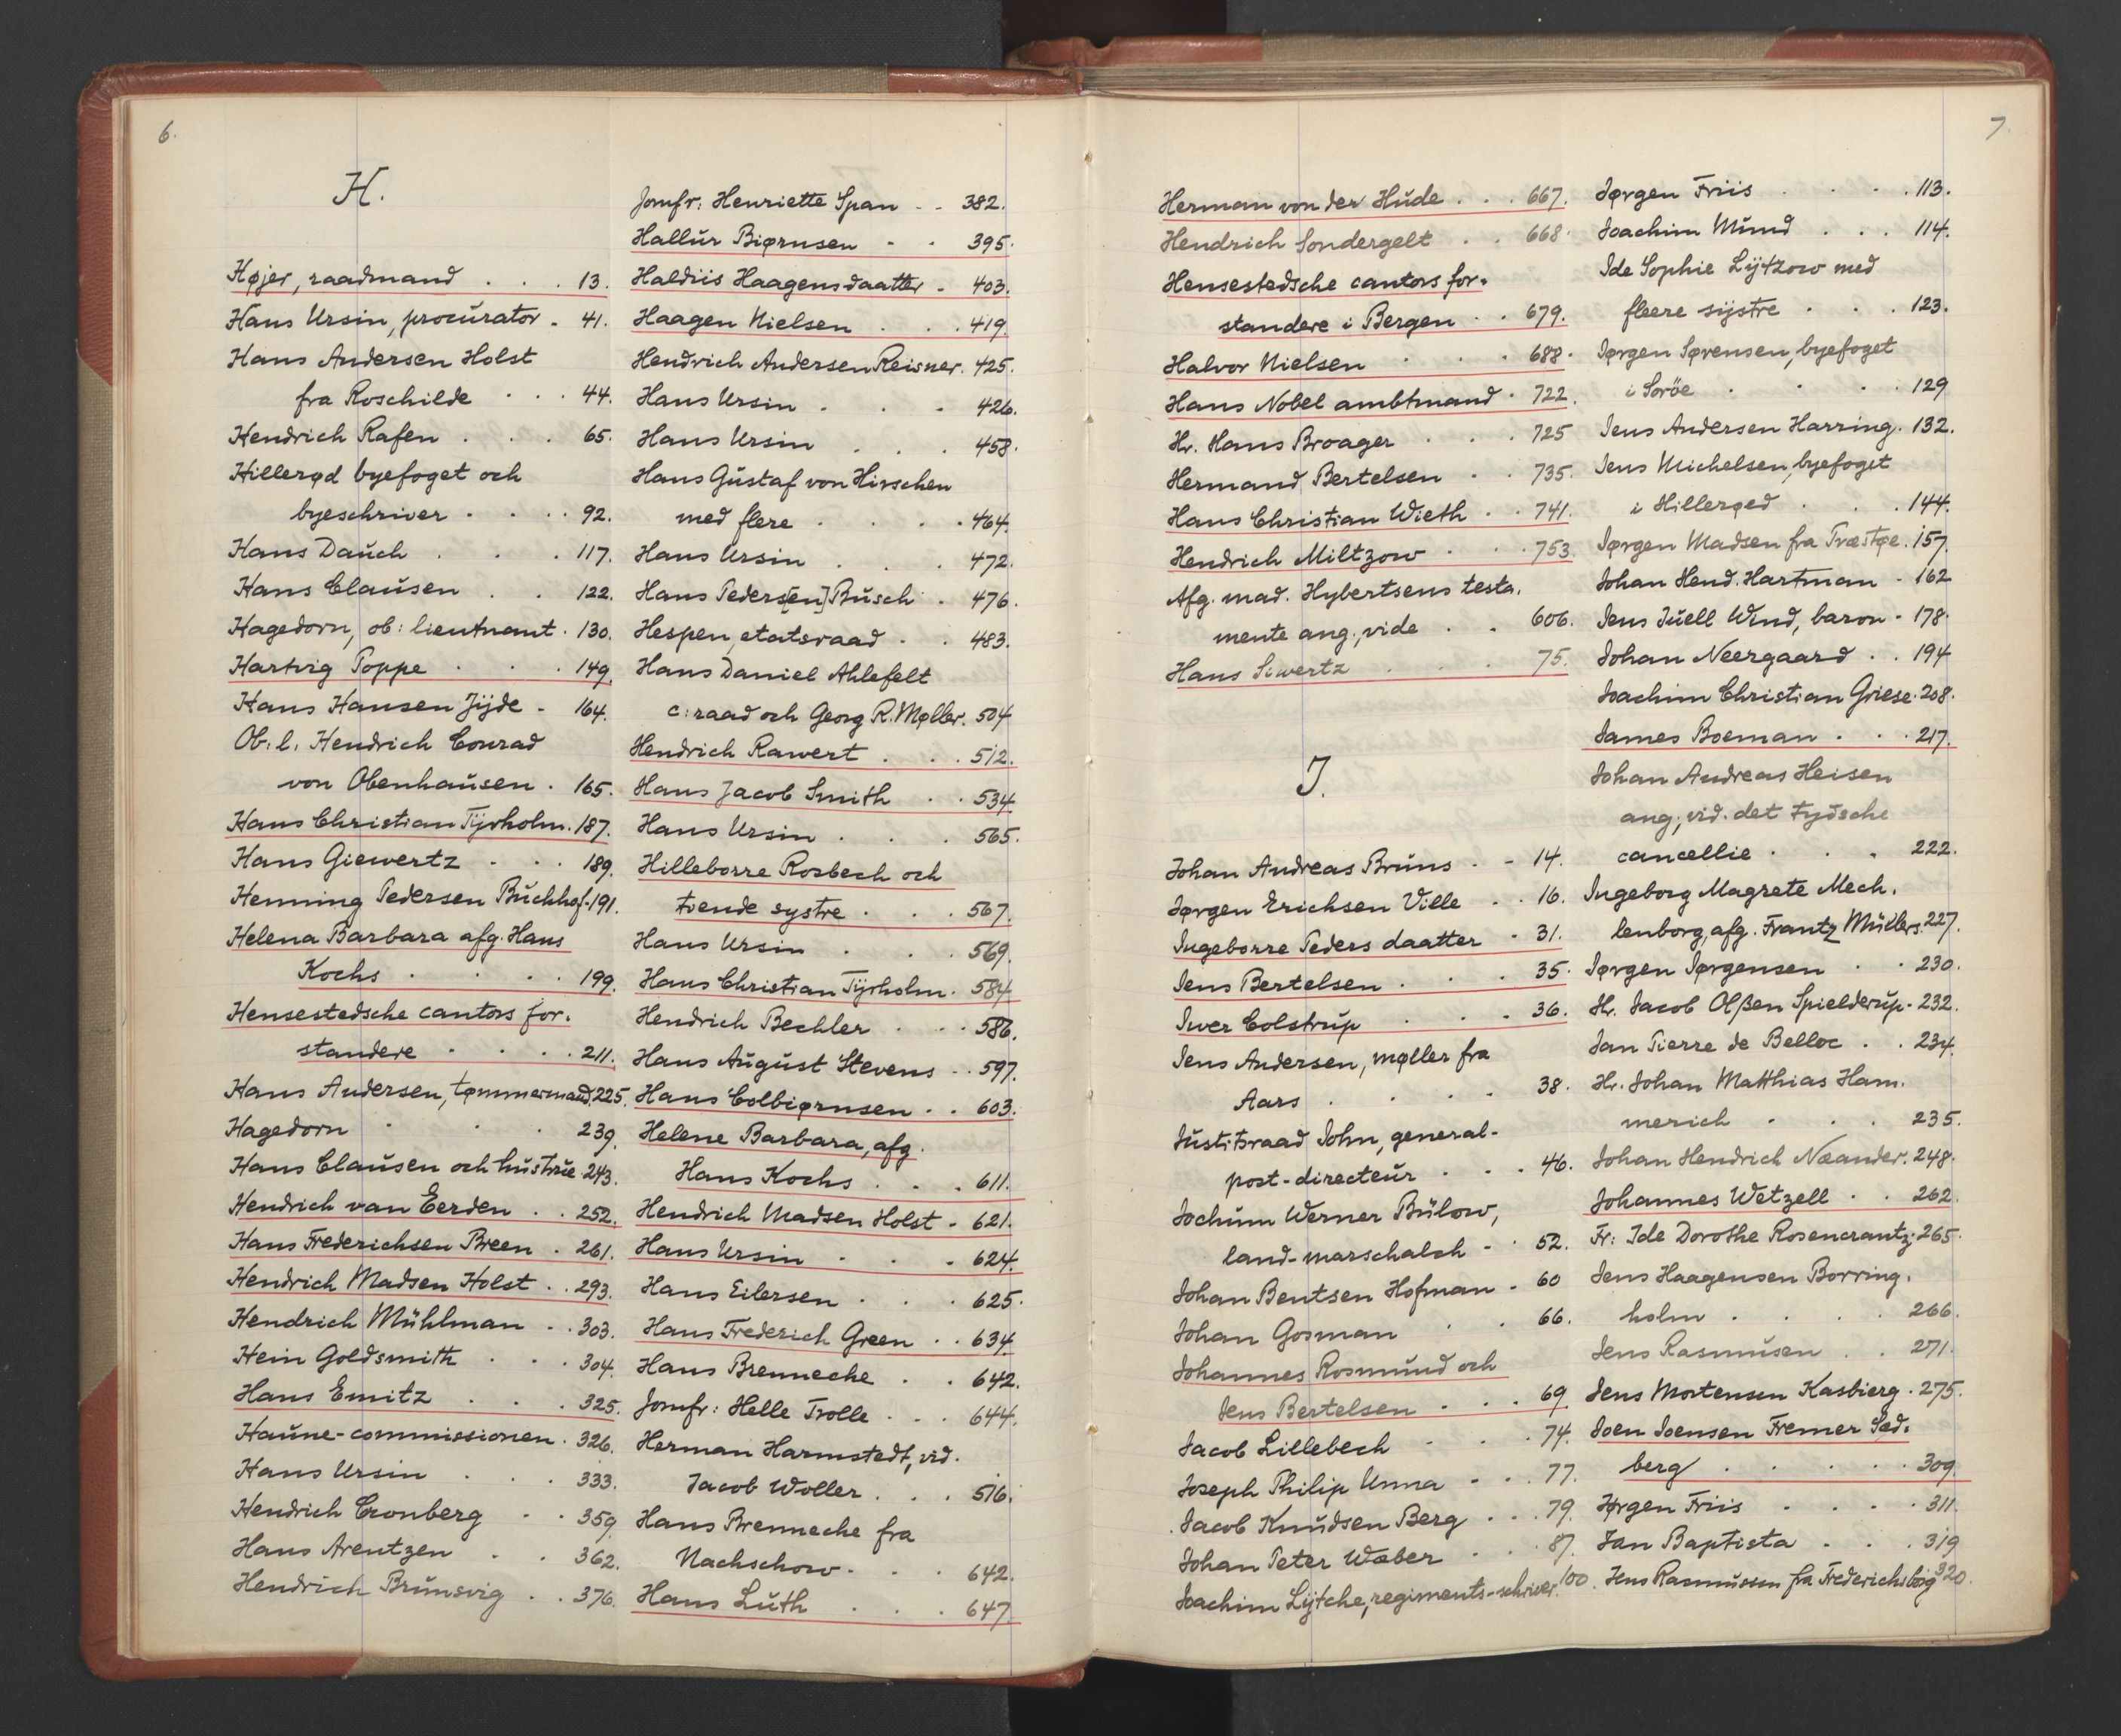 6.
H.
Højer, raadmand . . . 13.
Hans Ursin, procurator . 41.
Hans Andersen Holst
fra Roschilde . . . 44.
Hendrich Rafen . . . 65.
Hillerød byefoget och
byeschriver . . . . 92.
Hans Dauch . . . 117.
Hans Clausen . . 122.
Hagedorn, ob: lieutnant . 130.
Hartvig Poppe . . . 149.
Hans Hansen Jijde - 164.
Ob: l. Hendrich Conrad
von Obenhausen . 165.
Hans Christian Tijrholm . 187.
Hans Giewertz . . . 189.
Henning Pedersen Buchhof . 191.
Helena Barbara afg. Hans
Kochs . . . . 199.
Hensestedsche cantors for-
standere . . . . 211.
Hans Andersen, tømmermand. 225.
Hagedorn . . . 239.
Hans Clausen och hustrue 243.
Hendrich van Eerden . . 252.
Hans Frederichsen Breen . 261.
Hendrich Madsen Holst . . 293.
Hendrich Mühlman . . 303.
Hein Goldsmith . . . 304.
Hans Emitz . . . 325.
Haune-commissionen . 326.
Hans Ursin . . . 333.
Hendrich Cronberg . . 359
Hans Arentzen . . 362.
Hendrich Brunsvig . . 376.
Jomfr: Henriette Span - - 382.
Hallur Biørnsen - - 395.
Haldiis Haagensdaatter - 403.
Haagen Nielsen . . . 419.
Hendrich Andersen Reisner. 425.
Hans Ursin . . . 426.
Hans Ursin . . . 458.
Hans Gustaf von Hirschen
med flere . . . . 464.
Hans Ursin . . . 472.
Hans Peders[en] Busch . 476.
Hespen, etatsraad . . 483.
Hans Daniel Ahlefelt
c: raad och Georg R. Møller. 504
Hendrich Rawert . . . 512.
Hans Jacob Smith . . 534
Hans Ursin . . . 565.
Hilleborre Rosbech och
tvende systre . . . 567.
Hans Ursin . . . 569.
Hans Christian Tijrholm . 584
Hendrich Bechler . . . 586.
Hans August Stevens . . 597.
Hans Colbiørnsen . . 603.
Helene Barbara, afg.
Hans Kochs . . . 611.
Hendrich Madsen Holst - 621.
Hans Ursin . . . 624.
Hans Eilersen . . . 625.
Hans Frederich Green . . 634
Hans Brenneche . . 642.
Jomfr: Helle Trolle . . . 644.
Herman Harmstedt, vid.
Jacob Woller . . . 516.
Hans Brenneche fra
Nachschow . . . 642.
Hans Luth . . . 647.
7.
Herman von der Hude . . . 667.
Hendrich Sondergelt . . 668.
Hensestedsche cantors for-
standere i Bergen . . 679.
Halvor Nielsen . . . 688.
Hans Nobel ambtmand . 722.
Hr. Hans Broager . . . 725
Hermand Bertelsen . . 735.
Hans Christian Wieth . . 741.
Hendrich Miltzow . . . 753.
Afg. mad. Hybertsens testa-
mente ang., vide . . 606.
Hans Siwertz . . . 75.
J.
Johan Andreas Bruns . - 14.
Jørgen Erichsen Ville . . 16.
Ingeborre Peders daatter - 31.
Jens Bertelsen . . . 35.
Iver Colstrup . . . 36.
Jens Andersen, møller fra
Aars . . . . 38.
Justitsraad John, general-
post-directeur . . . 46.
Jochum Werner Bülow,
land-marschalch - . 52.
Johan Bentsen Hofman - 60
Johan Gosman . . 66.
Johannes Rosmund och
Jens Bertelsen . . . 69.
Jacob Lillebech . . . 74.
Joseph Philip Unna . . . 77.
Jacob Knudsen Berg . . . 79.
Johan Peter Wæber . . . 87.
Joachim Lijtche, regiments-schriver. 100.
Jørgen Friis . . . . 113.
Joachim Mund . . . 114.
Ide Sophie Lijtzow med
fleere sijstre . . . 123.
Jørgen Sørensen, byefoget
i Soröe . . . . 129
Jens Andersen Harring. 132.
Jens Michelsen, byefoget
i Hillerøed . . . 144.
Jørgen Madsen fra Præstøe. 157.
Johan Hend. Hartman - 162
Jens Juell Wind, baron - 178.
Johan Neergaard . . 194
Joachim Christian Griese. 208.
James Boeman . . . 217.
Johan Andreas Heisen
ang., vid. det tydsche
cancellie . . . 222.
Ingeborg Magrete Mech-
lenborg, afg. Frantz Müllers 227.
Jørgen Jørgensen . . 230.
Hr. Jacob Olßen Spielderup - 232.
Jan Pierre de Belloc . . 234.
Hr. Johan Matthias Ham-
merich . . . 235.
Johan Hendrich Næander. 248.
Johannes Wetzell . . 262.
Fr: Ide Dorothe Rosencrantz. 265.
Jens Haagensen Borring-
holm . . . . 266.
Jens Rasmusen . . 271.
Jens Mortensen Kasbierg . 275.
Joen Joensen Fremer Sød-
berg . . . . . 309.
Jørgen Friis . . . . 311.
Jan Baptista . . . 319
Jens Rasmussen fra Frederichsborg 320.